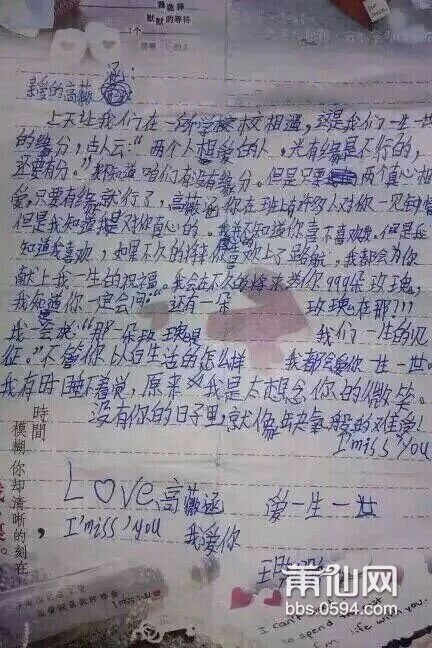 我选择
默默的等待
亲爱的高薇涵:
上天让我们在一所学校相遇,这是我们一生一世
的缘分,古人云:“两个人想爱的人,光有缘是不行的,
还要有分。”我知道咱们有没有缘分。但是只要两个真心相
爱,只要有缘就行了,高薇涵你在班上有许多人对你一见钟情
但是我知道我是对你真心的。我不知道你喜不喜欢我。但是我
知道我喜欢,如果不久的将来你喜欢上了路航,我都会为你
献上我一生的祝福。我会在不久的将来送你999朵玫瑰,
我知道你一定会问:“还有一朵 玫瑰在那???
我会说:“那一朵玫瑰是 我们一生的见
征。”不管你以后生活的怎么样 我都会爱你一生一世。
我有时睡不着觉,原来我是太想念你的微笑。
没有你的日子里,就像缺氧般的难受!
I'miss'you
時間
模糊你却清晰的刻在
Love高薇涵 爱一生一世
I'miss'you 我爱你
莆仙网
bbs.0594.com
I can't
to spend the rest
life with you.